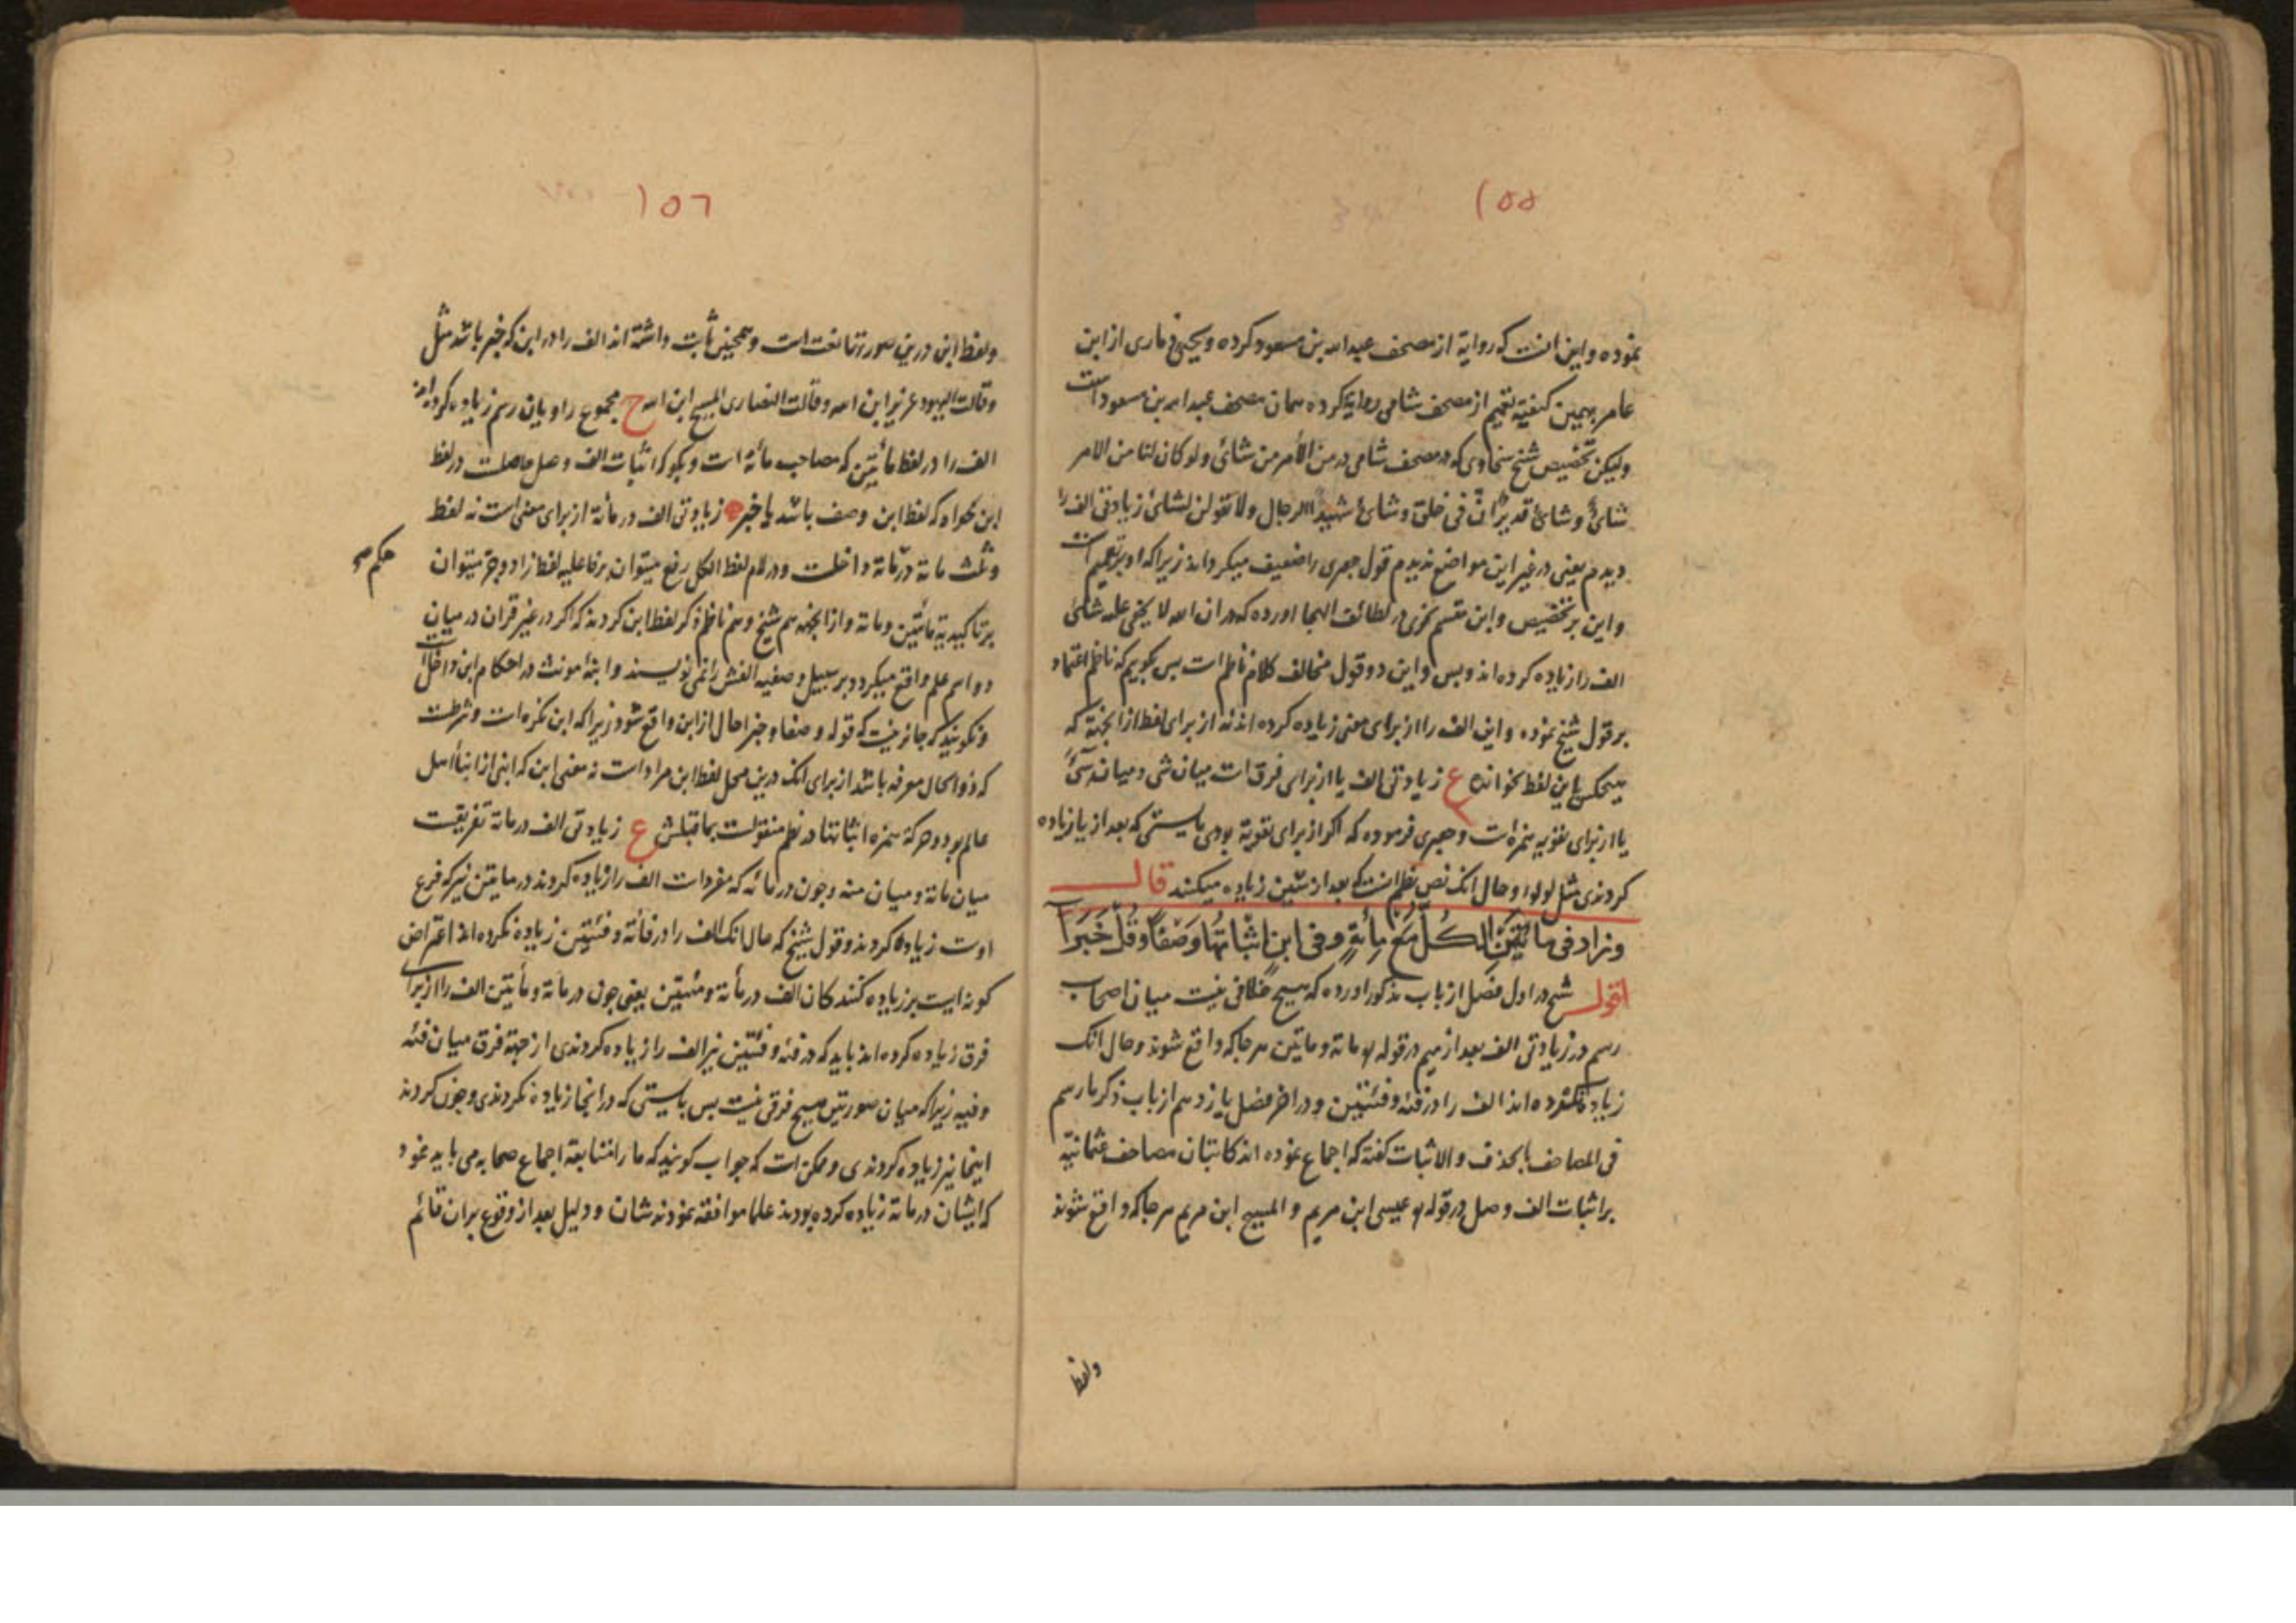 ١٥٥
نموده و این انست که روایة از مصحف عبدالله بن مسعود کرده و یحیی ذماری از ابن
عامر بهمین کیفیة تعمیم از مصحف شامی روایة کرده همان مصحف عبدالله بن مسعود است
ولیکن تخصیص شیخ سخاوی که در مصحف شامی در من الأمر من شائ ولو کان لنا من الامر
شائ وشائ قدیر فی خلق وشائ شهیدا الرجال ولا تقولن لشائ زیادتی الف را
دیدم یعنی در غیر این مواضع ندیدم قول جعبری را ضعیف میکرداند زیرا که او بر تعمیم است
و این بر تخصیص و ابن مقسم نحوی در لطائف الهجا اورده که در ان الله لا یخفی علیه شائ
الف را زیاده کرده اند و بس و این دو قول مخالف کلام ناظم است بس بکویم که ناظم اعتماد
بر قول شیخ نموده و این الف را از برای معنی زیاده کرده اند نه از برای لفظ از انجهة که
هیچکس باین لفظ نخوانده ع زیادتی الف یا از برای فرق است میان شی و میان شئ
یا از برای تقویه همزه است و جعبری فرموده که اکر از برای تقویة بودی بایستی که بعد از یا زیاده
کردندی مثل لولوا و حال انک نص نظم انست که بعد از شین زیاده میکنند قال
وزاد فی مائتین الکل مع مائة وفی ابن اثباتها وصفا وقل خبرا
اقول شیخ در اول فصل از باب مذکور اورده که هیچ خلافی نیست میان اصحاب
رسم در زیادتی الف بعد از میم در قوله تع مائة ومائتین هر جا که واقع شوند و حال انک
زیاده نکرده اند الف را در فئة و فئتین و در اخر فصل یازدهم از باب ذکر ما رسم
فی المصاحف بالحذف والاثبات کفته که اجماع نموده اند کاتبان مصاحف عثمانیة
بر اثبات الف وصل در قوله تع عیسی ابن مریم و المسیح ابن مریم هر جا که واقع شوند
ولفظ
١٥٦
ولفظ ابن درین صورتها نعت است و همچنین ثابت داشته اند الف را در ابن که خبر باشد مثل
وقالت الیهود عزیر ابن الله وقالت النصاری المسیح ابن الله ح مجموع راویان رسم زیاده کرده اند
الف را در لفظ مائتین که مصاحب مائة است و بکو که اثبات الف وصل حاصلست در لفظ
ابن خواه که لفظ ابن وصف باشد یا خبر زیادتی الف در مائة از برای معنی است نه لفظ
وثلث مائة در مائة داخلست و در لام لفظ الکل رفع میتوان بر فاعلیه لفظ زاد و جر میتوان
حکم
بر تاکیدیة مائتین و مائة و از انجهة هم شیخ و هم ناظم ذکر لفظ ابن کردند که اکر در غیر قران در میان
دو اسم علم واقع میکردد بر سبیل وصفیه الفش را نمی نویسند و ابنة مونث در احکام ابن داخل است
ونکویند که جائز نیست که قوله وصفا و خبرا حال از ابن واقع شود زیرا که ابن نکره است و شرطست
که ذو الحال معرفه باشد از برای انک درین محل لفظ ابن مراد است نه معنی ابن که ابنی از ابنا اهل
عالم بود و حرکة همزه اثباتها در نظم منقولست بماقبلش ع زیادتی الف در مائة تفریقست
میان مائة و میان منه و چون در مائه که مفرد است الف را زیاده کردند در مایتین نیز که فرع
اوست زیاده کردند و قول شیخ که حال انک الف را در فائة و فئتین زیاده نکرده اند اعتراض
کونه ایست بر زیاده کنندکان الف در مأته و مئتین یعنی چون در مائة و مأیتین الف را از برای
فرق زیاده کرده اند باید که در فئه و فئتین نیز الف را زیاده کردندی از جهة فرق میان فئه
و فیه زیرا که میان صورتین هیچ فرقی نیست بس بایستی که در انجا زیاده نکردندی و چون کردند
اینجا نیز زیاده کردندی و ممکن است که جواب کویند که ما را متابعة اجماع صحابه می باید نمود
که ایشان در مائة زیاده کرده بودند علما موافقه نمودند شان و دلیل بعد از وقوع بران قائم